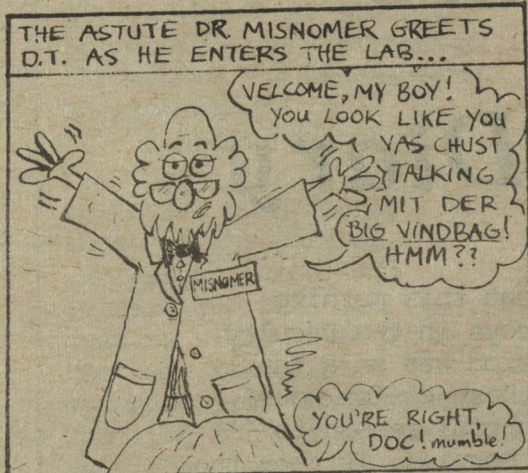 THE ASTUTE DR. MISNOMER GREETS
D.T. AS HE ENTERS THE LAB...
VELCOME, MY BOY!
YOU LOOK LIKE YOU
VAS CHUST
TALKING
MIT DER
BIG VINDBAG!
HMM??
MISNOMER
YOU'RE RIGHT,
DOC! mumble!